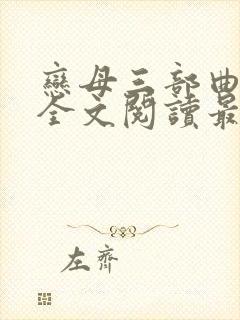 戀母三部曲
全文閱讀最
左齊